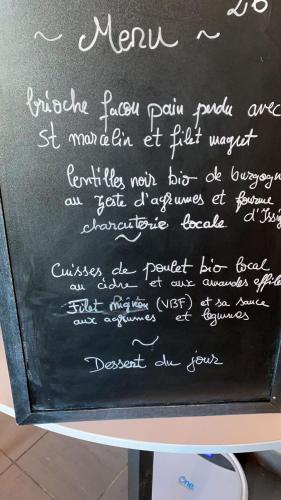 26
~ Menu ~
brioche façon pain perdu avec
St marcelin et filet magret
lentilles noir bio de burgogn
au zeste d'agrumes et fourme
charcuterie locale d'Issi
~
Cuisses de poulet bio local
au cidre et aux amandes effilé
Filet mignon (VBF) et sa sauce
aux agrumes et legumes
~
Dessert du jour
One